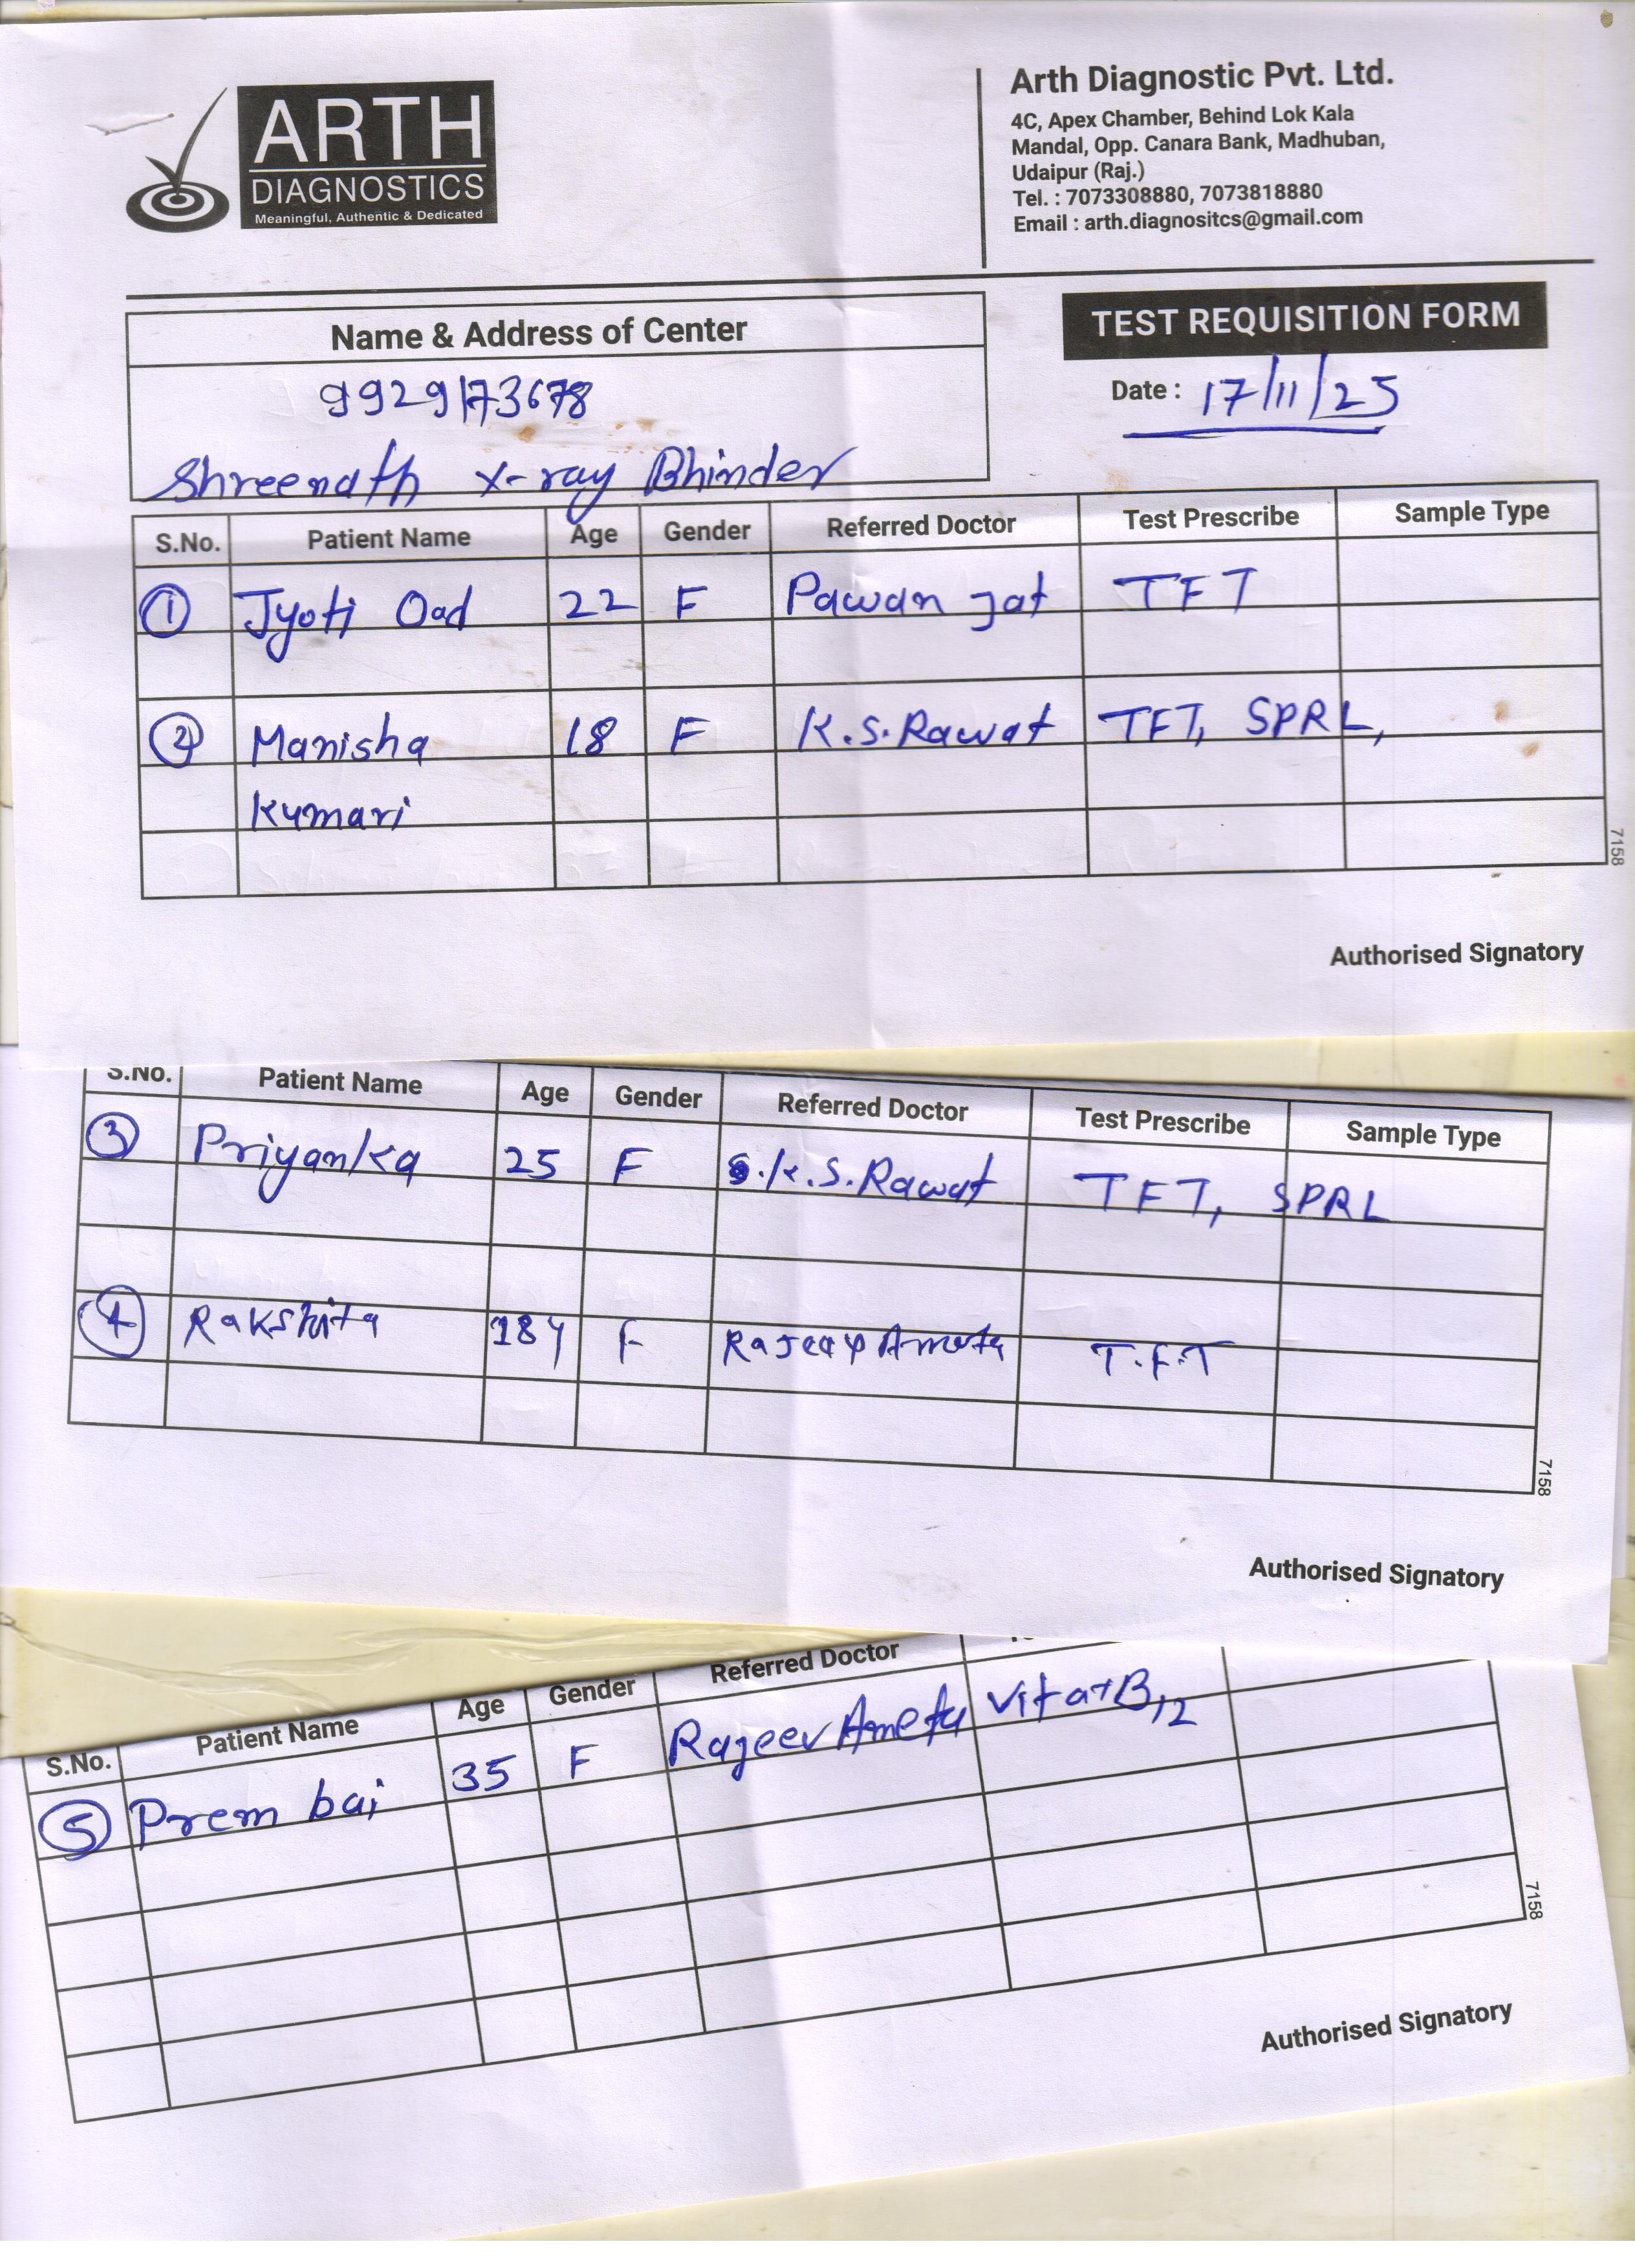 ARTH
DIAGNOSTICS
Meaningful, Authentic & Dedicated
Arth Diagnostic Pvt. Ltd.
4C, Apex Chamber, Behind Lok Kala
Mandal, Opp. Canara Bank, Madhuban,
Udaipur (Raj.)
Tel. : 7073308880, 7073818880
Email : arth.diagnositcs@gmail.com
Name & Address of Center
9929173678
Shreenath x-ray Bhinder
TEST REQUISITION FORM
Date : 17/11/25
S.No. Patient Name Age Gender Referred Doctor Test Prescribe Sample Type
1 Jyoti Oad 22 F Pawan jat TFT
2 Manisha 18 F K.S. Rawat TFT, SPRL,
Kumari
7158
Authorised Signatory
S.No. Patient Name Age Gender Referred Doctor Test Prescribe Sample Type
3 Priyanka 25 F K.S. Rawat TFT, SPRL
4 Rakshita 18y F Rajeev Ameta T.F.T
7158
Authorised Signatory
S.No. Patient Name Age Gender Referred Doctor
5 Prem bai 35 F Rajeev Ameta B12
7158
Authorised Signatory